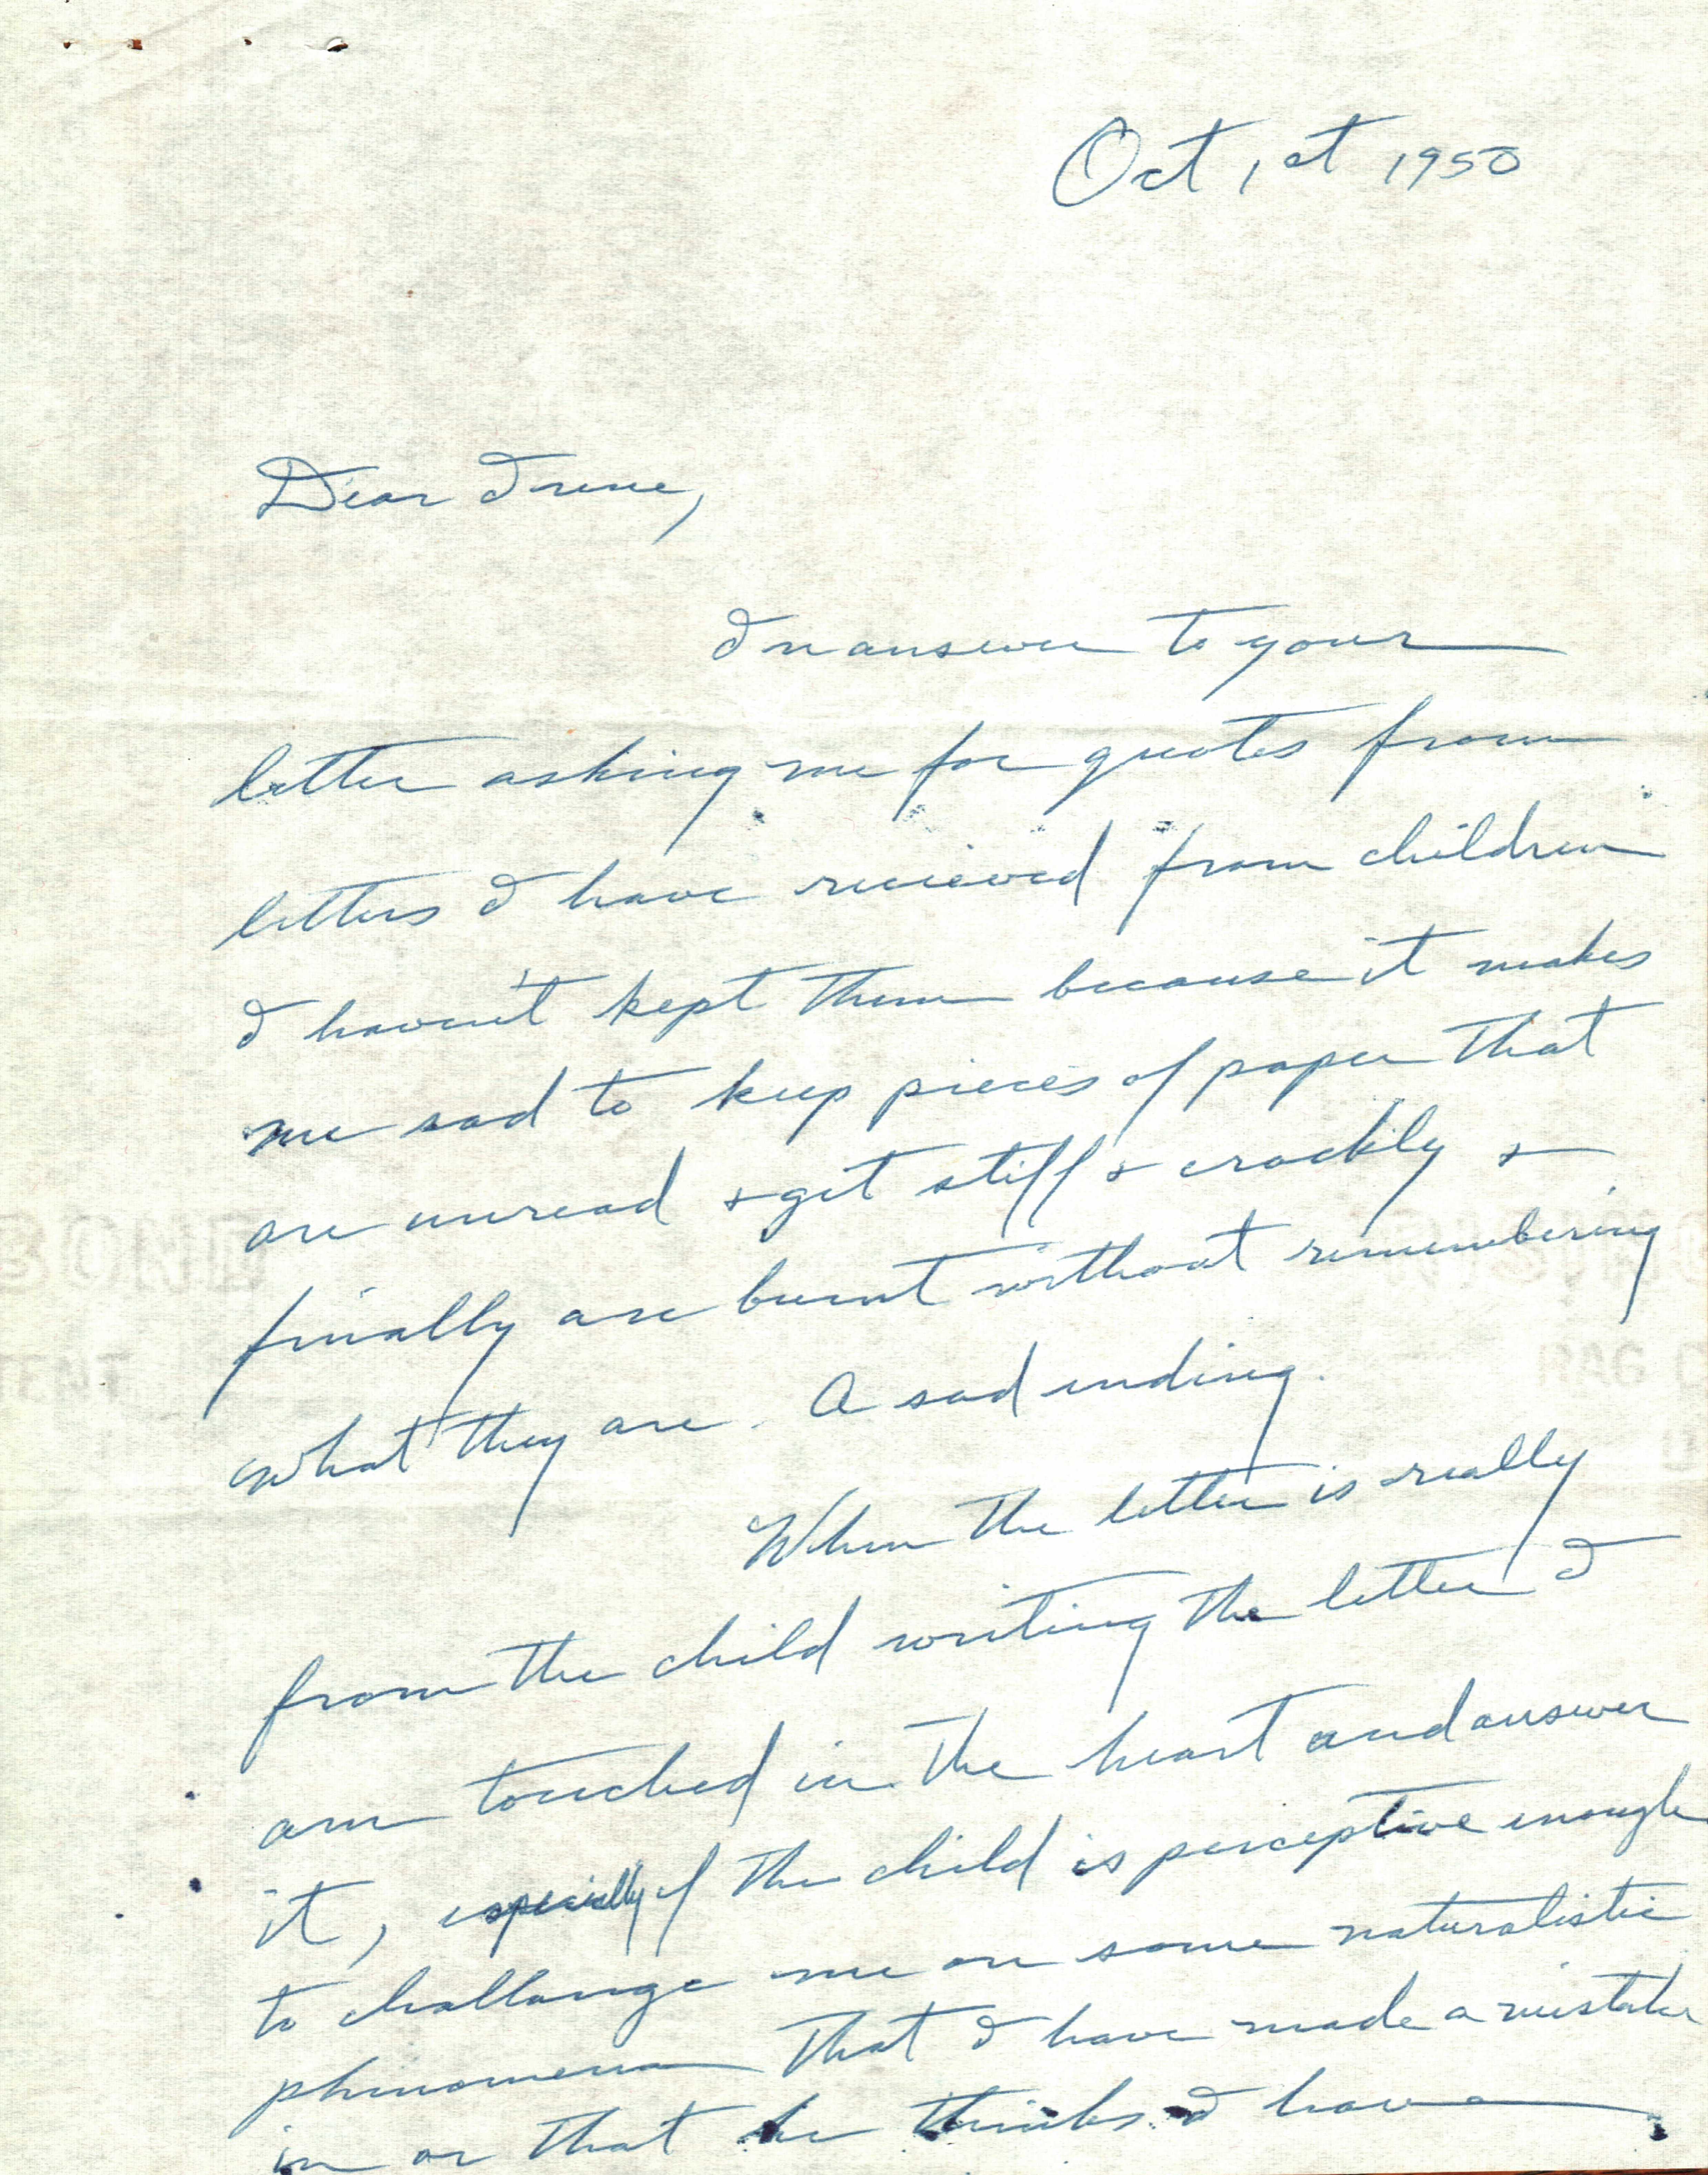 Oct 1st 1950
Dear Irene,
In answer to your
letter asking me for quotes from
letters I have recieved from children
I haven't kept them because it makes
me sad to keep pieces of paper that
are unread & get stiff & crackily &
finally are burnt without remembering
what they are. A sad ending.
When the letter is really
from the child writing the letter I
am touched in the heart and answer
it, especially if the child is perceptive enough
to challange me on some naturalistic
phenomena that I have made a mistake
in or that he thinks I have